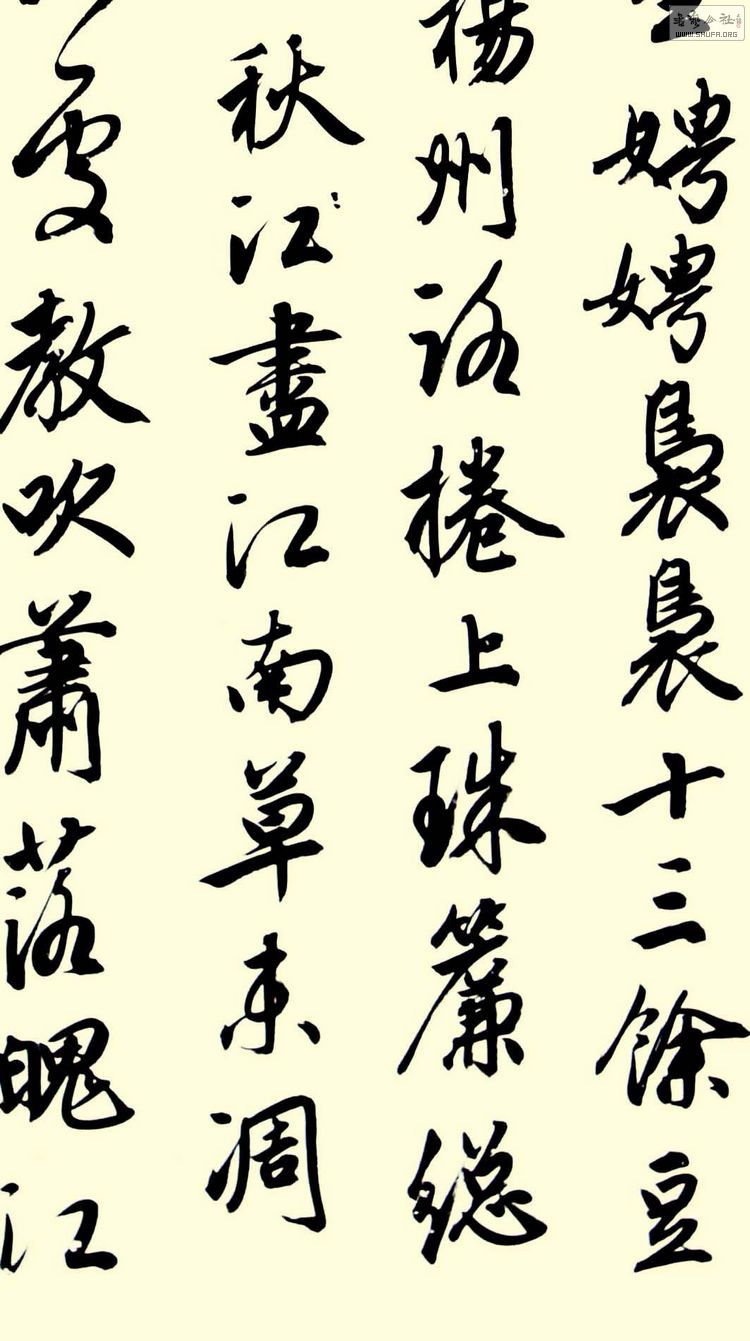 娉娉裊裊十三餘豆
楊州路捲上珠簾總
秋江盡江南草未凋
處教吹蕭落魄江
WWW.SHUFA.ORG